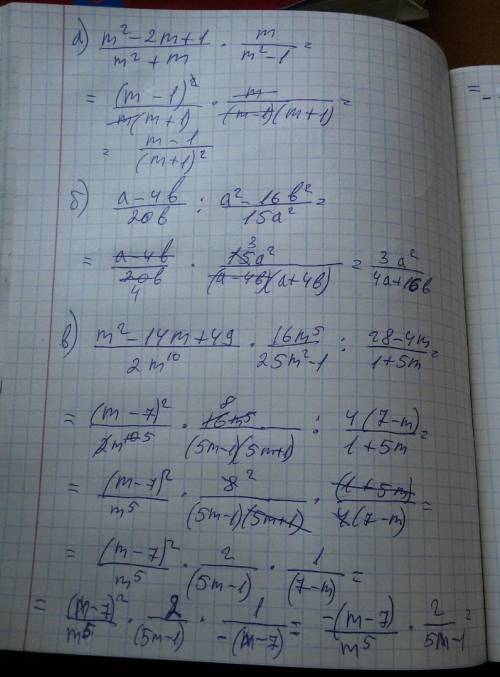 а) (m² - 2m + 1)/(m² + m) · m/(m² - 1) =
= (m - 1)²/(m(m + 1)) · m/((m - 1)(m + 1)) =
= (m - 1)/(m + 1)²
б) (a - 4в)/(20в) : (a² - 16в²)/(15a²) =
= (a - 4в)/(20в) 4 · 3 15a²/((a - 4в)(a + 4в)) = 3a²/(4a + 16в)
в) (m² - 14m + 49)/(2m¹⁰) · 16m⁵/(25m² - 1) : (28 - 4m)/(1 + 5m) =
= (m - 7)²/(2m¹⁰ ⁵) · 8 16m⁵/((5m - 1)(5m + 1)) : 4(7 - m)/(1 + 5m) =
= (m - 7)²/m⁵ · 8 2/((5m - 1)(5m + 1)) · (1 + 5m)/(4(7 - m)) =
= (m - 7)²/m⁵ · 2/(5m - 1) · 1/(7 - m) =
= (m - 7)²/m⁵ · 2/(5m - 1) · 1/(-(m - 7)) = -(m - 7)/m⁵ · 2/(5m - 1) =
=
-